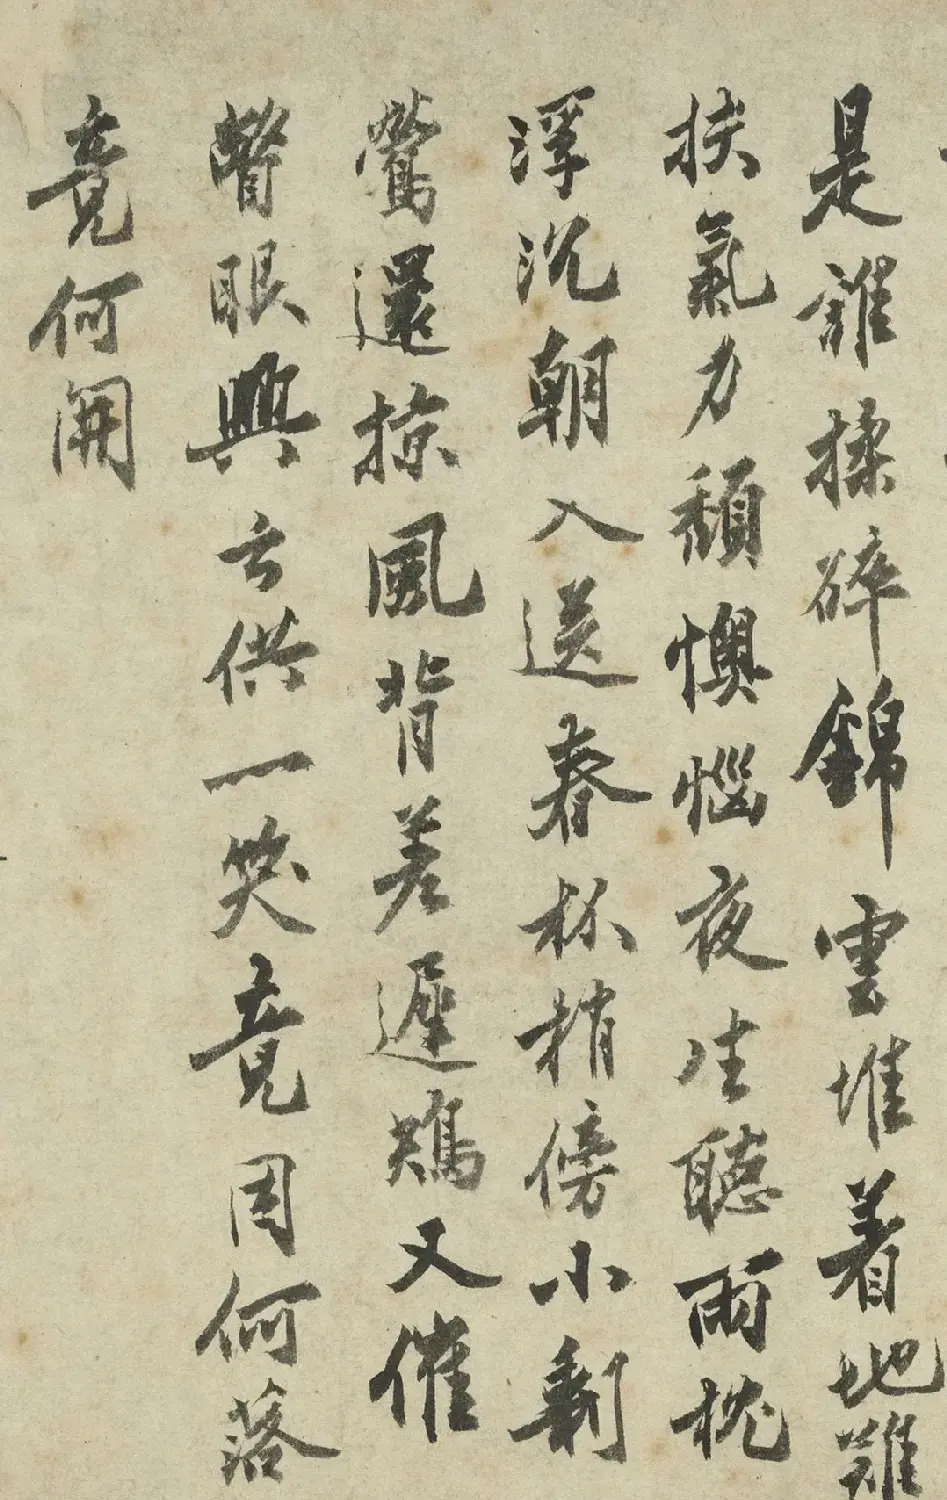 是誰揉碎錦雲堆着地難
扶氣力頹懊惱夜生聽雨枕
浮沉朝入送春杯梢傍小剩
鶯還掠風背差遲又催
瞥眼興亡供一笑竟因何落
竟何開